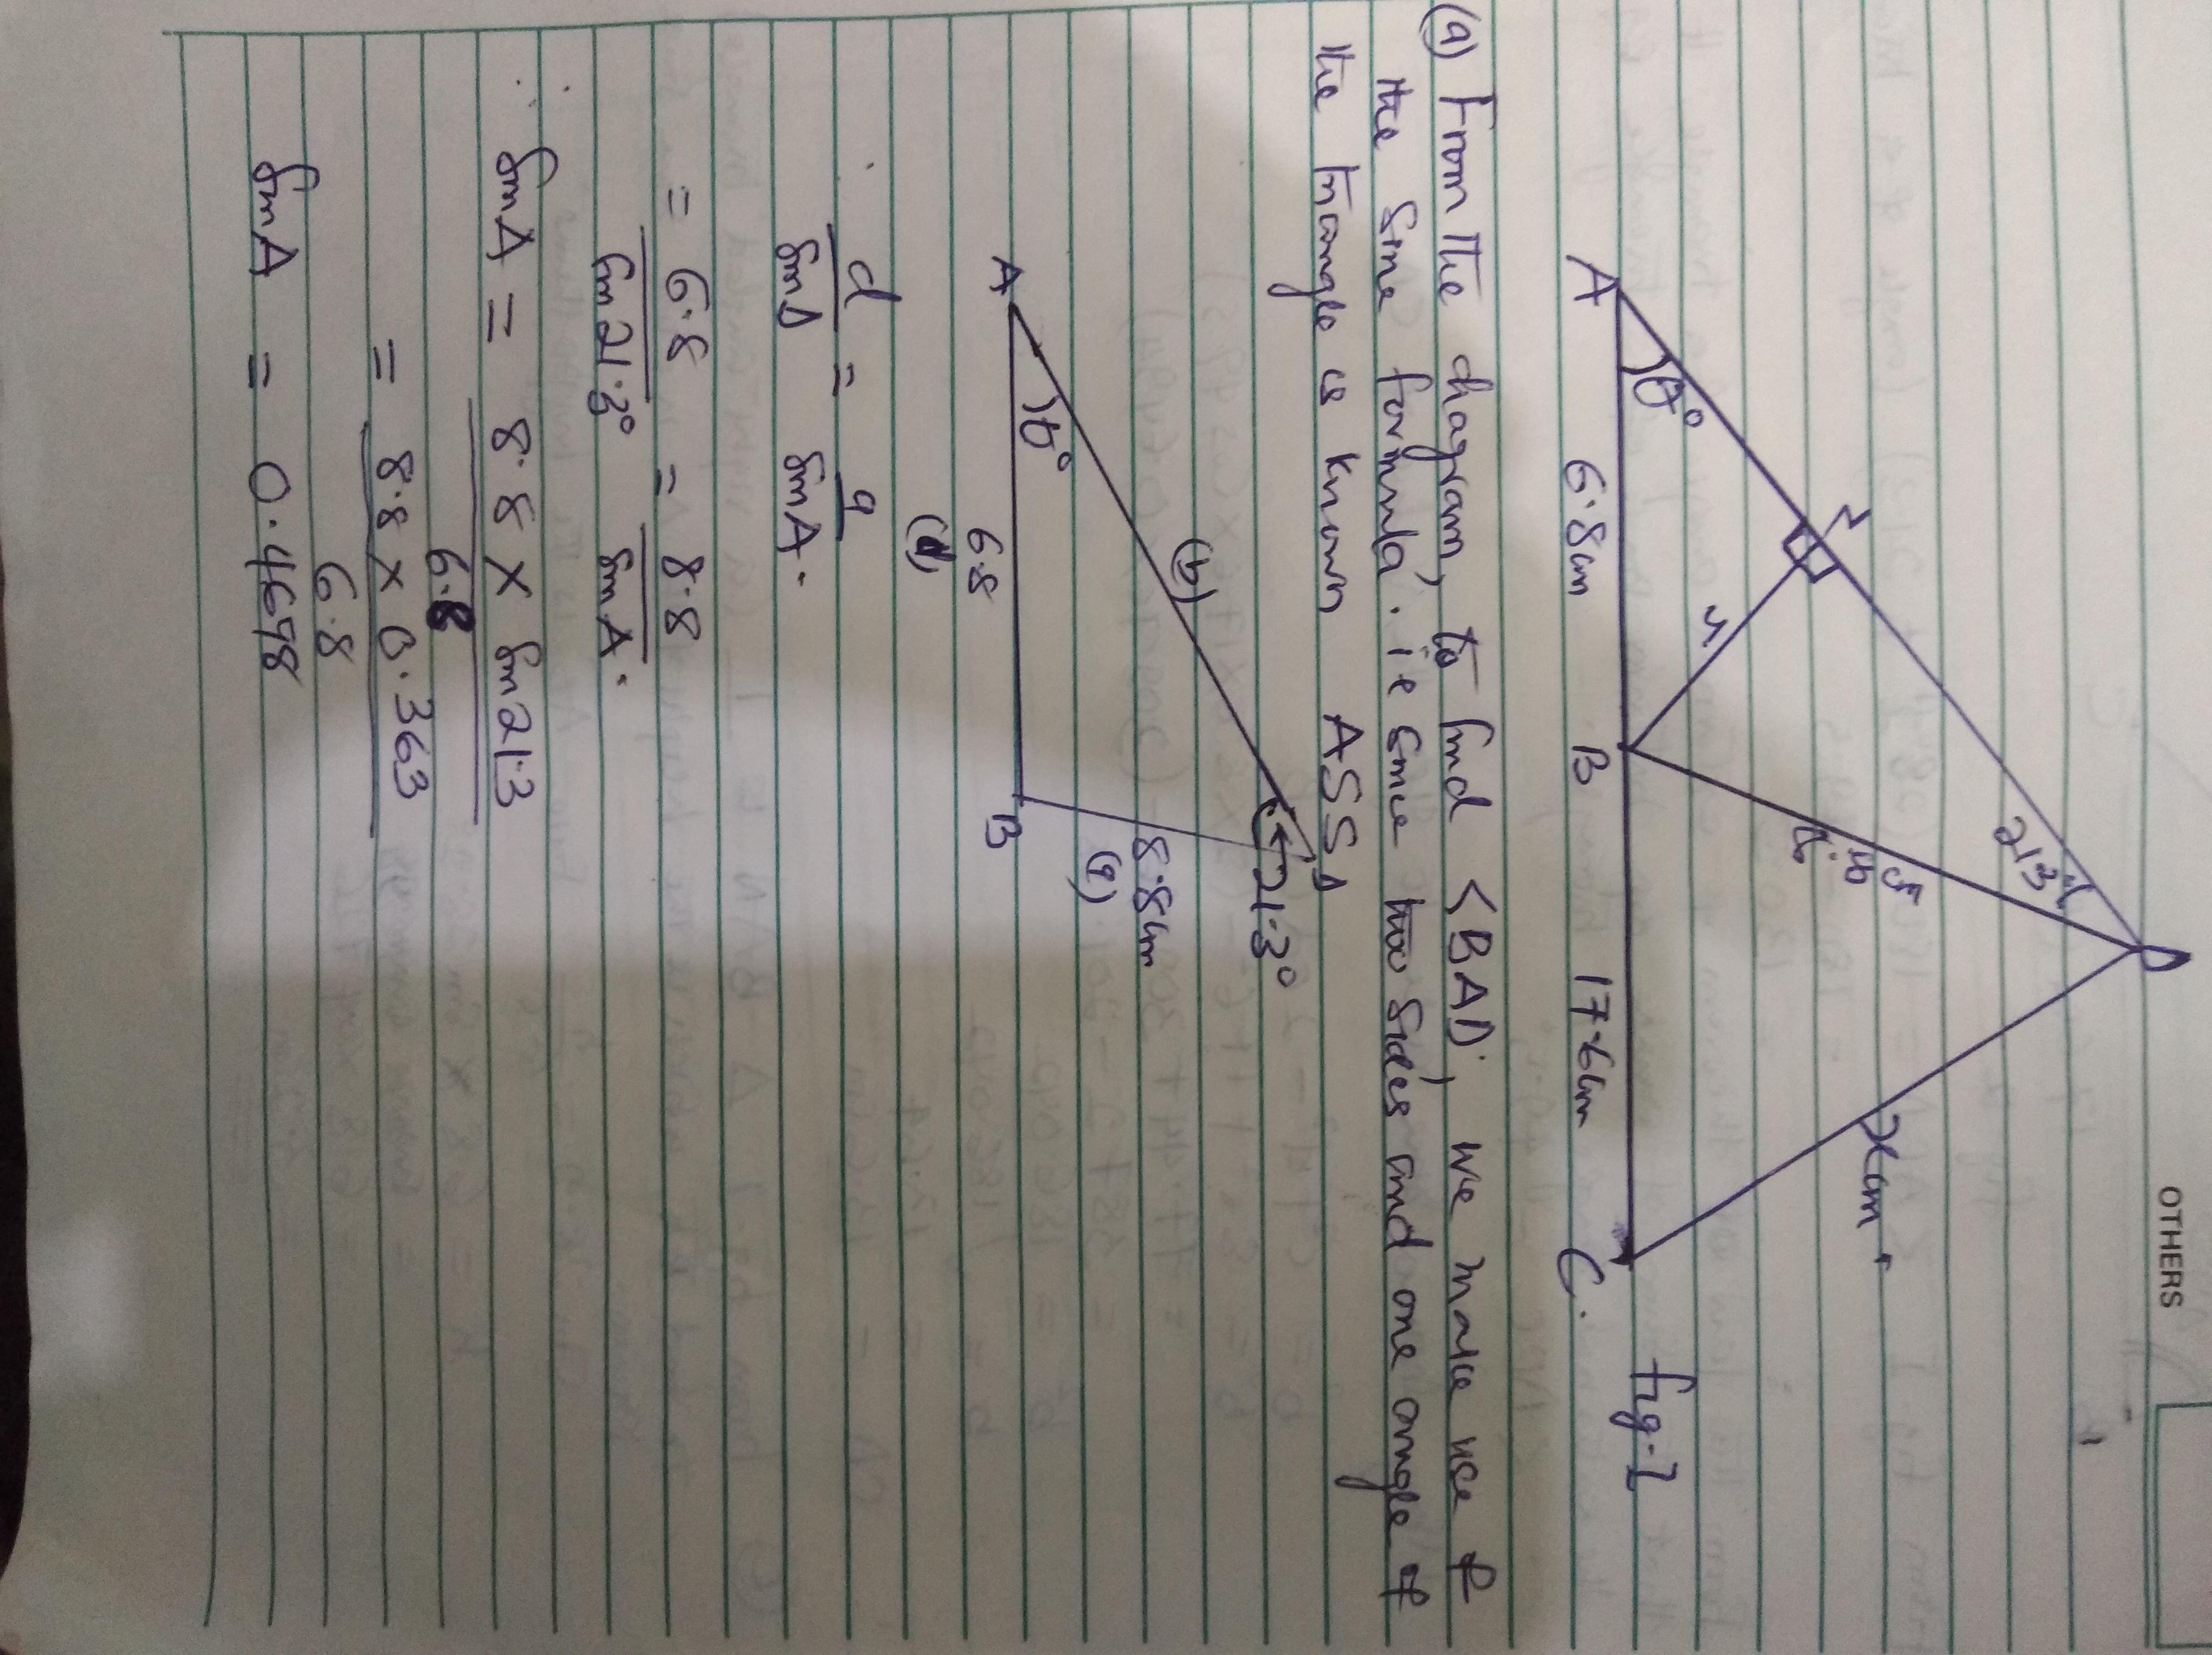 OTHERS
D
21.3°
xcm
h
A
θ°
6.8cm
B
17.6cm
C.
fig. 1
(a) From the diagram, to find <BAD, we make use of
the sine formula. ie since two sides and one angle of
the triangle is known ASS
D
21.3°
(b)
8.8cm
(a)
A
θ°
B
6.8
(d)
d = a
sinD sinA.
= 6.8 = 8.8
sin21.3° sinA.
sinA = 8.8 × sin21.3
6.8
= 8.8 × 0.363
6.8
sinA = 0.4698